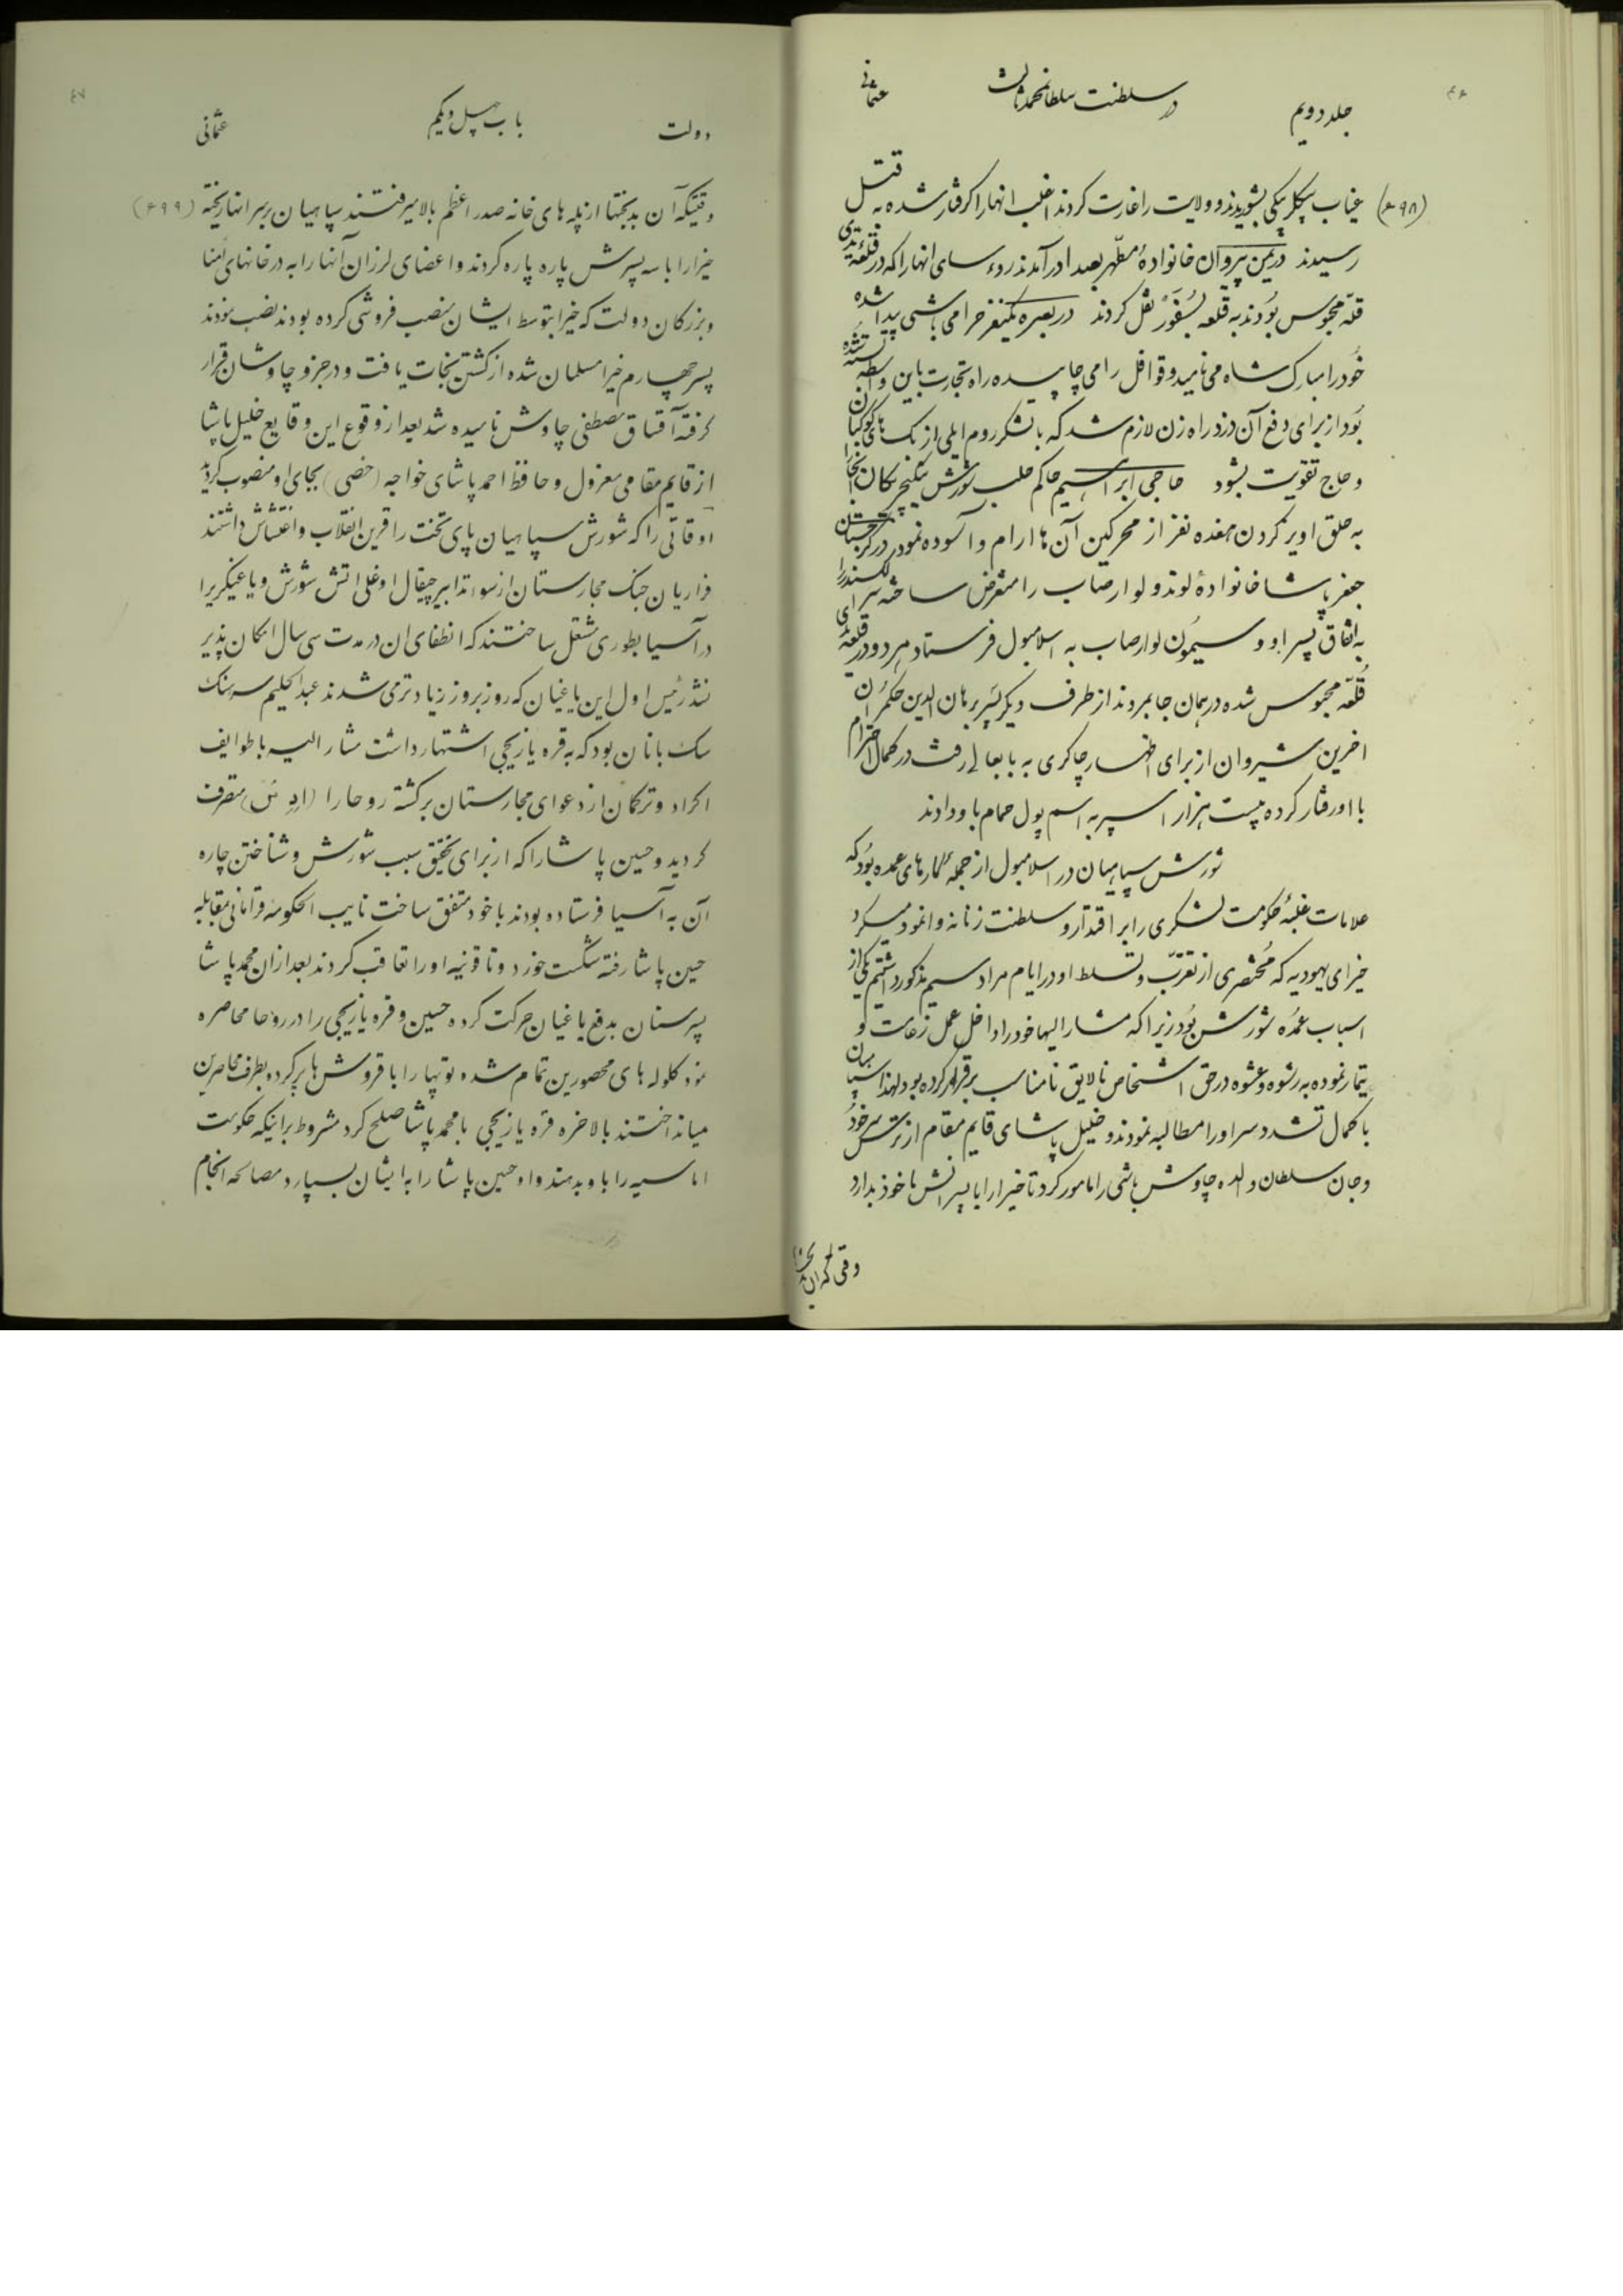 ۴۶
جلد دویم در سلطنت سلطان محمد ثالث عثمانی
(۶۹۸) غیاب بیکلربیکی بشوریدند و ولایت را غارت کردند اغلب انها را کرفتار شده به قتل
رسیدند در یمن پیروان خانوادهٔ مطهر بصدا در آمدند روءسای انها را که در قلعه یدی
قله محبوس بودند به قلعه نقل کردند در بصره یکنفر حرامی باشی پیدا شده
خود را مبارک شاه می نامید و قوافل را می چاپید راه تجارت باین واسطه بسته شده
بود از برای دفع آن دزد راه زن لازم شد که با لشکر روم ایلی از
و حاج تقویت بشود حاجی ابراهیم حاکم حلب شورش ینکیچریکان آنجا را
به حلق اویز کردن هفده نفر از محرکین آن ها ارام و آسوده نمود در کرجستان
جعفر پاشا خانوادهٔ لوند و لوارصاب را متعرض ساخته الکسندر را
به اتفاق پسر او و سیمون لوارصاب به اسلامبول فرستاد هر دو در قلعه یدی
قله محبوس شده در همان جا بمردند از طرف دیگر پسر برهان الدین حکمران
اخرین شیروان از برای اظهار چاکری به بابعالی رفت در کمال احترام
با او رفتار کرده بیست هزار اسپر به اسم پول حمام باو دادند
شورش سپاهیان در اسلامبول از جمله کارهای عمده بود که
علامات غلبهٔ حکومت لشکری را بر اقتدار و سلطنت زنانه وانمود میکرد
خیرای یهودیه که مختصری از تقرّب و تسلط او در ایام مراد سیم مذکور داشتیم یکی از
اسباب عمده شورش بود زیرا که مشار الیها خود را داخل عمل زعامت و
تیمار نموده به رشوه و عشوه در حق اشخاص نالایق نامناسب برقرار کرده بود لهذا سپاهیان
با کمال تشدد سر او را مطالبه نمودند و خلیل پاشای قایم مقام از ترس سر خود
و جان سلطان والده چاوش باشی را مامور کرد تا خیرا را با پسرانش ماخوذ بدارد
وقتی که ان
۴۷
دولت باب چهل و یکم عثمانی
وقتیکه آن بدبختها از پله های خانه صدر اعظم بالا میرفتند سپاهیان بر سر انها ریخته (۶۹۹)
خیرا را با سه پسرش پاره پاره کردند و اعضای لرزان آنها را به در خانهای امنا
و بزرکان دولت که خیرا بتوسط ایشان منصب فروشی کرده بودند نصب نمودند
پسر چهارم خیرا مسلمان شده از کشتن نجات یافت و در جزو چاوشان قرار
کرفته آقساق مصطفی چاوش نامیده شد بعد از وقوع این وقایع خلیل پاشا
از قایم مقامی معزول و حافظ احمد پاشای خواجه (خصی) بجای او منصوب کردید
اوقاتی را که شورش سپاهیان پای تخت را قرین انقلاب و اغتشاش داشتند
فراریان جنک مجارستان از سوء تدابیر چیقال اوغلی اتش شورش و یاغیگری را
در آسیا بطوری مشتعل ساختند که انطفای ان در مدت سی سال امکان پذیر
نشد رئیس اول این یاغیان که روز بروز زیادتر می شدند عبدالحلیم سرهنک
سک بانان بود که به قره یازیجی اشتهار داشت مشار الیه با طوایف
اکراد و ترکمان از دعوای مجارستان برکشته روحا را متصرف
کردید و حسین پاشا را که از برای تحقیق سبب شورش و شناختن چاره
آن به آسیا فرستاده بودند با خود متفق ساخت نایب الحکومه قرامانی بمقابله
حسین پاشا رفته شکست خورد و تا قونیه او را تعاقب کردند بعد از ان محمد پاشا
پسر سنان بدفع یاغیان حرکت کرده حسین و قره یازیجی را در روحا محاصره
نمود کلوله های محصورین تمام شده توپها را با قروش ها پر کرده بطرف محاصرین
میانداختند بالاخره قره یازیجی با محمد پاشا صلح کرد مشروط برانیکه حکومت
اماسیه را باو بدهند و او حسین پاشا را به ایشان بسپارد مصالحه انجام